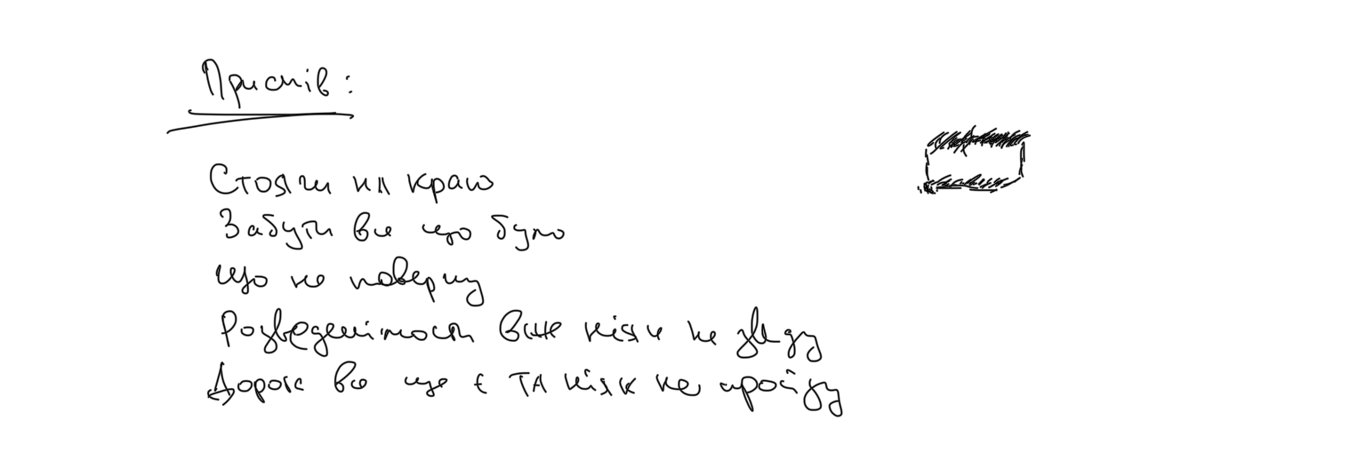 Приспів:
Стояти на краю
Забути все що було
що не поверну
Розведені мости вже ніяк не зведу
Дорога все ще є та ніяк не пройду